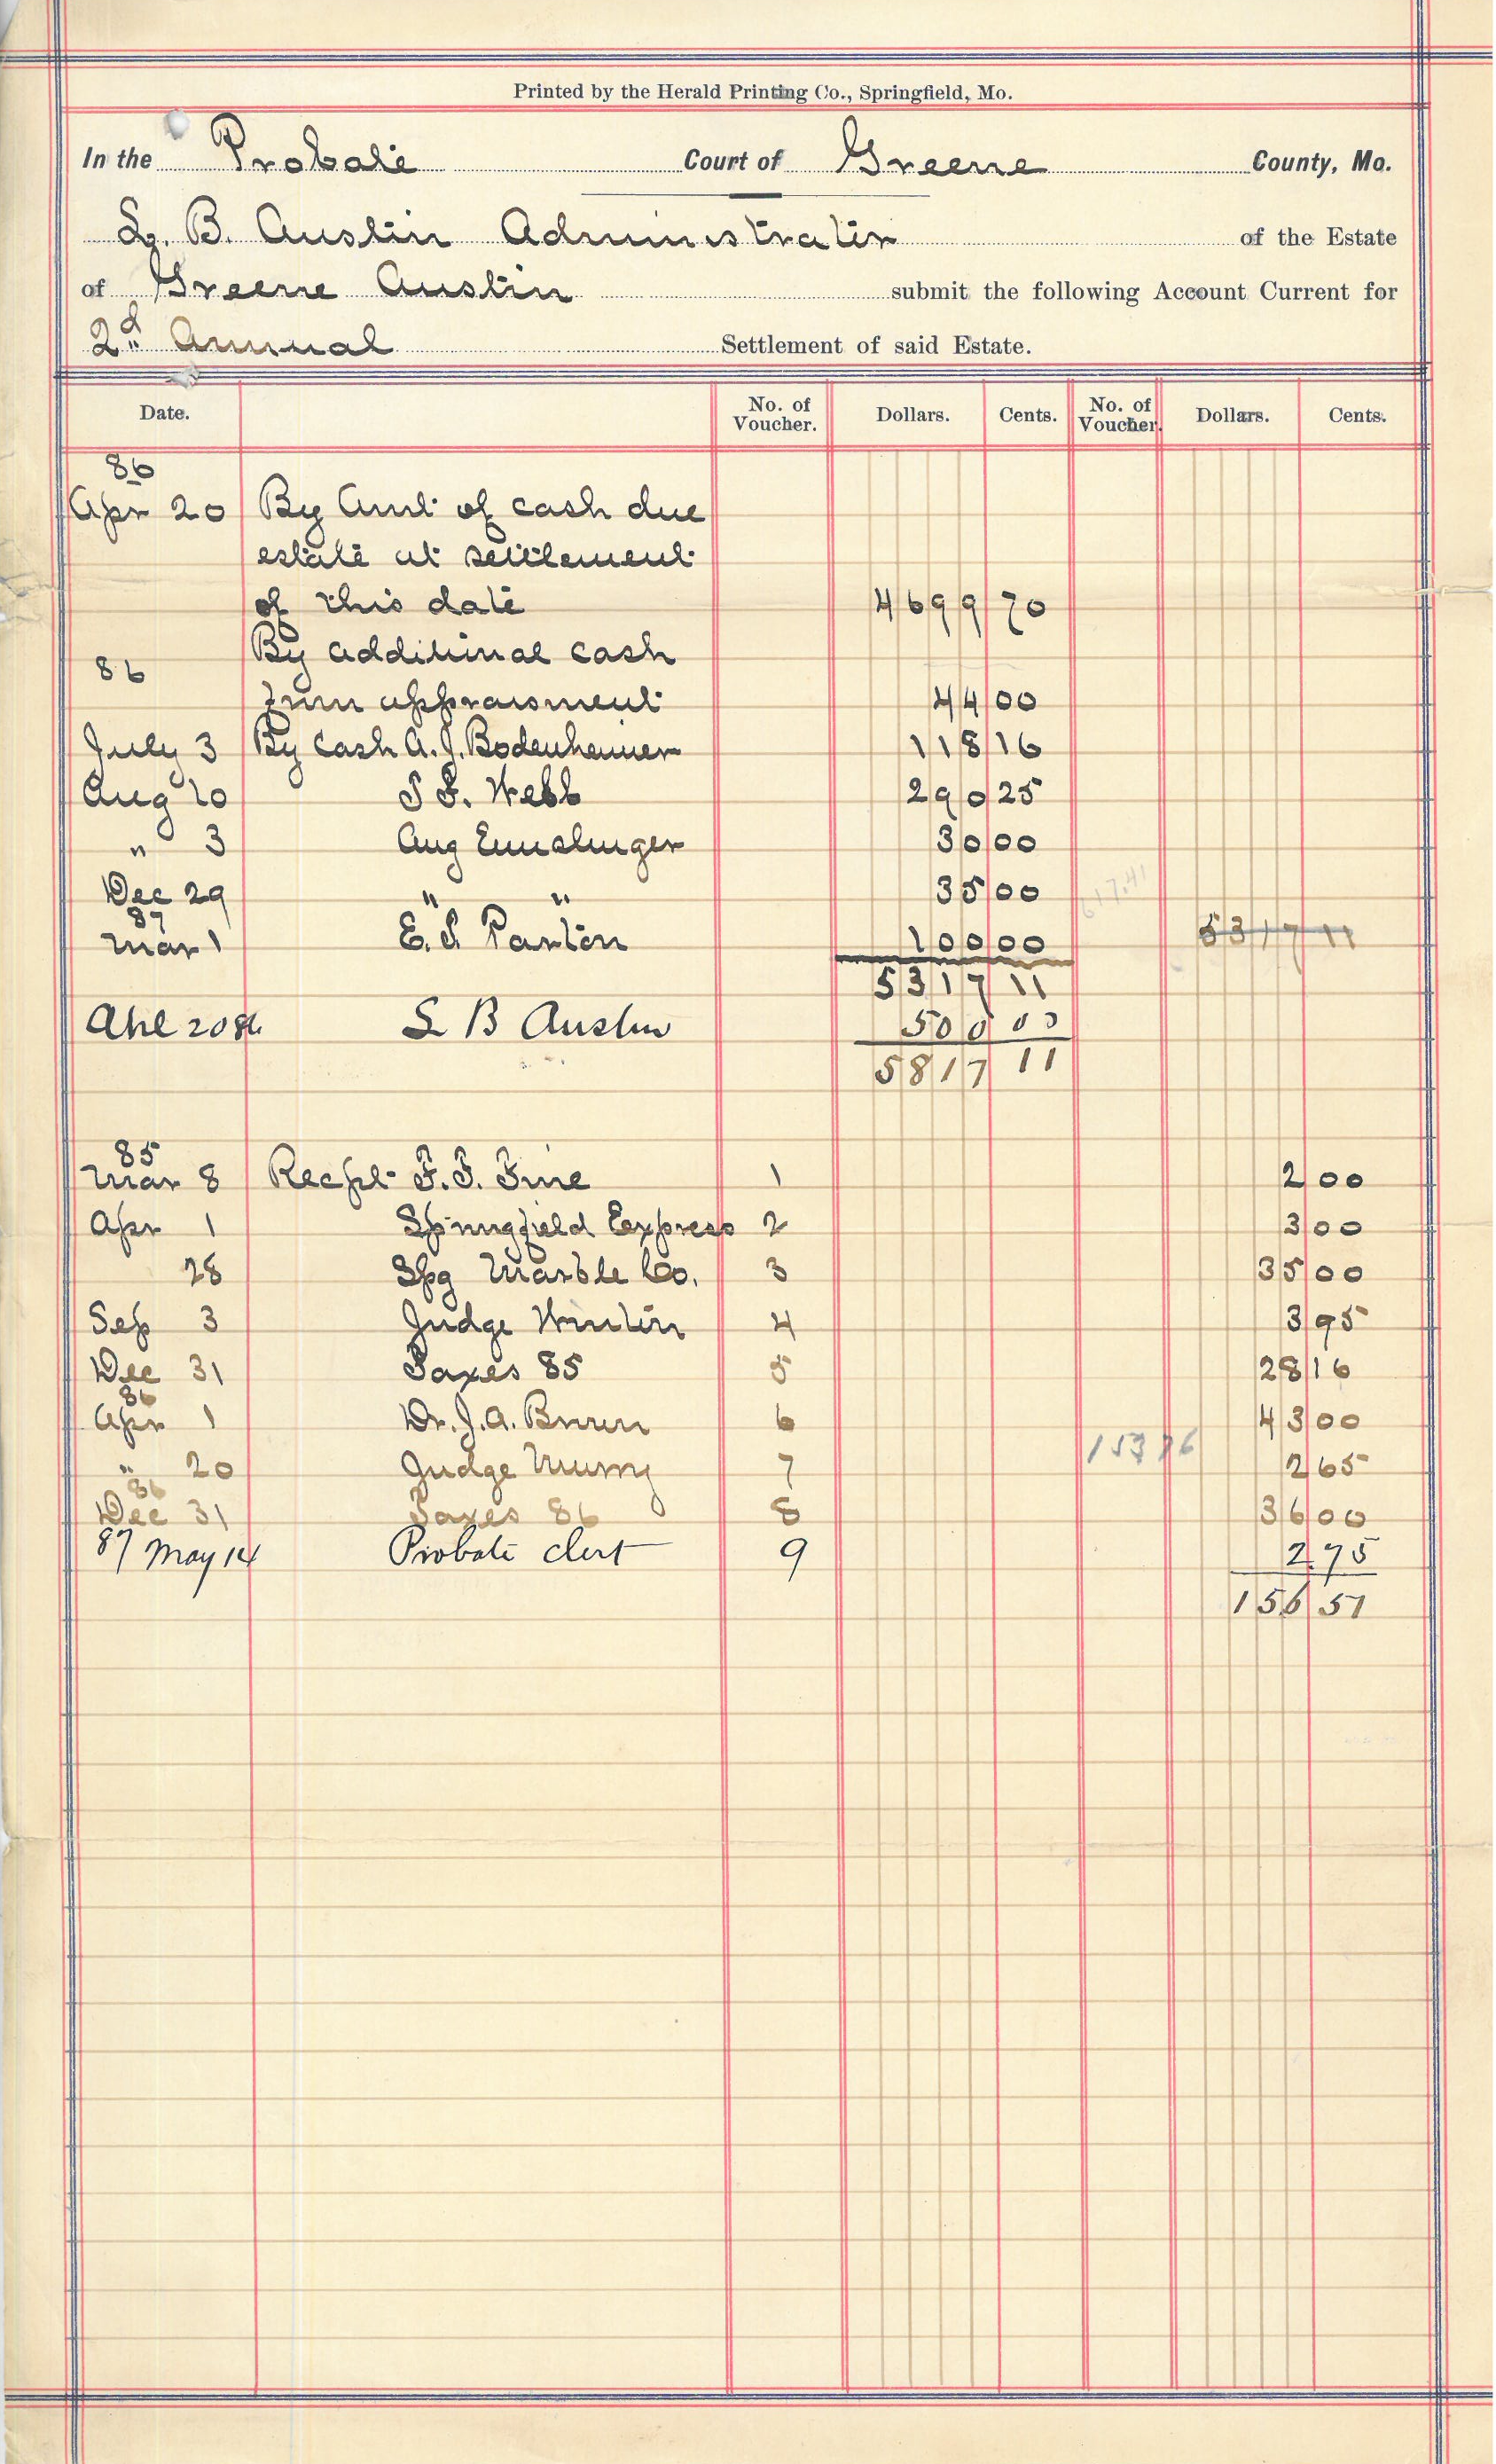 Printed by the Herald Printing Co., Springfield, Mo.
In the Probate Court of Greene County, Mo.
L. B. Austin Administrator of the Estate
of Greene Austin submit the following Account Current for
2d Annual Settlement of said Estate.
Date. No. of Voucher. Dollars. Cents. No. of Voucher. Dollars. Cents.
86
Apr 20 By Amt of cash due
estate at settlement
of this date 4699 70
By additional cash
86
from appraisment 44 00
July 3 By Cash A. J. Bodenhamer 118 16
Aug 20 S. F. Webb 290 25
" 3 Aug 30 00
Dec 29 " " 35 00
17.41
87
Mar 1 E. S. Paxton 100 00 5317 11
5317 11
Apl 20 86 L B Austin 500 00
5817 11
85
Mar 8 Recpt F. F. Fine 1 2 00
Apr 1 Springfield Express 2 3 00
28 Spg Marble Co. 3 35 00
Sep 3 Judge 4 3 95
Dec 31 Taxes 85 5 28 16
86
Apr 1 Dr. J. A. Brown 6 43 00
153 76
" 20 Judge 7 2 65
86
Dec 31 Taxes 86 8 36 00
87 May 14 Probate clert 9 2.75
156 51